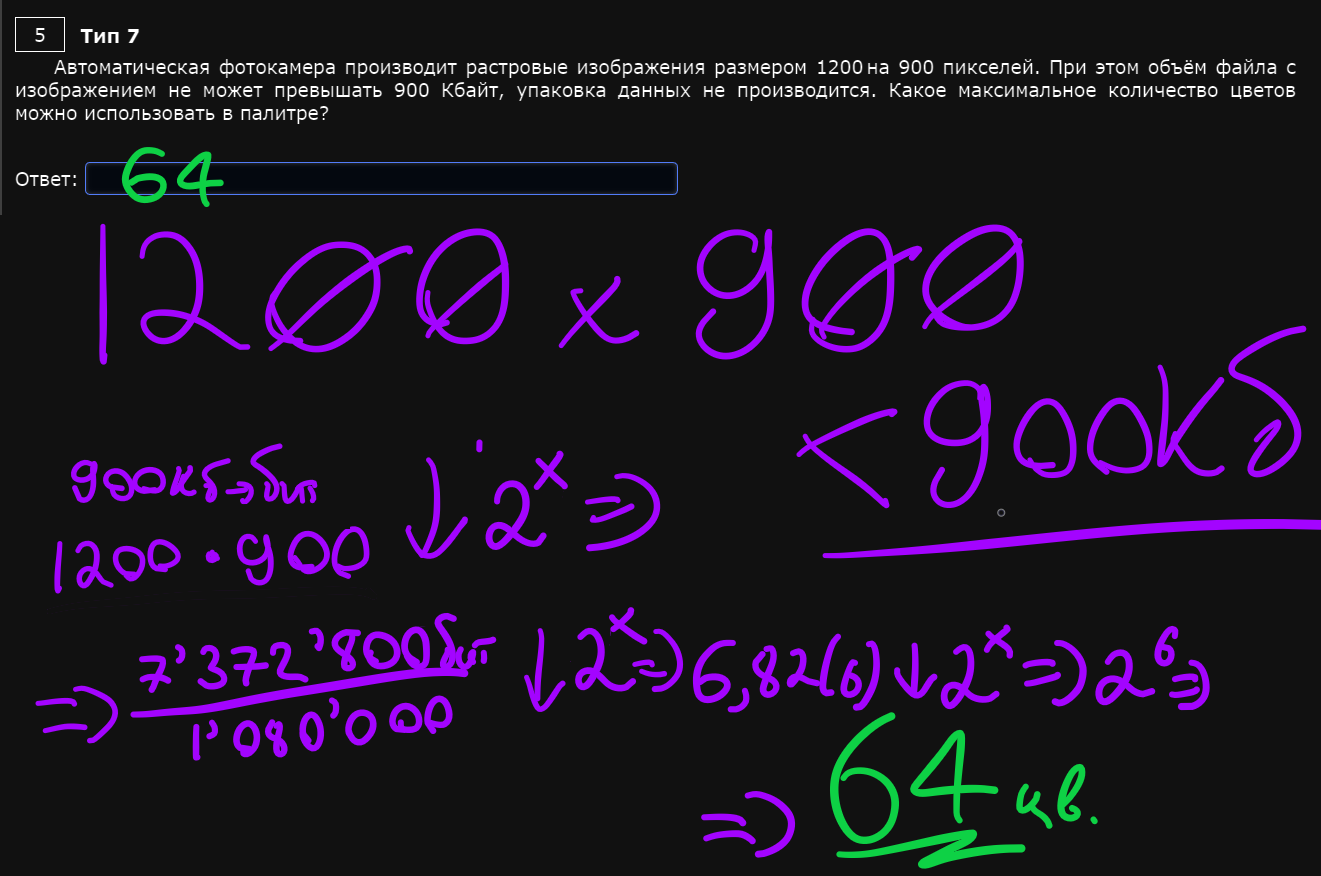 5 Тип 7
Автоматическая фотокамера производит растровые изображения размером 1200 на 900 пикселей. При этом объём файла с
изображением не может превышать 900 Кбайт, упаковка данных не производится. Какое максимальное количество цветов
можно использовать в палитре?
Ответ: 64
1200 x 900
< 900кб
900кб→бит
1200 · 900 ↓ 2^x =>
=> 7'372'800бит
1'080'000
↓ 2^x => 6,82(6) ↓ 2^x => 2^6 =>
=> 64 цв.